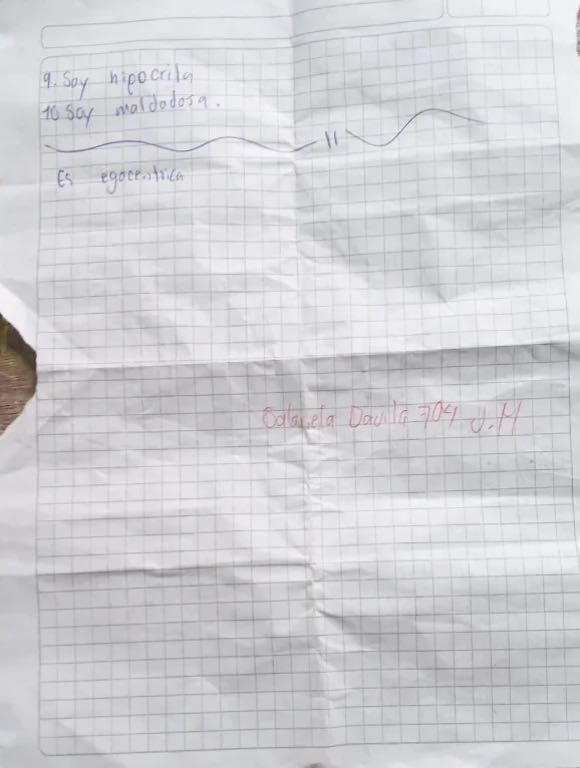 9. Soy hipocrita
10 Soy maldadosa.
Es egocentrica
Gabriela Davila 704 J.M